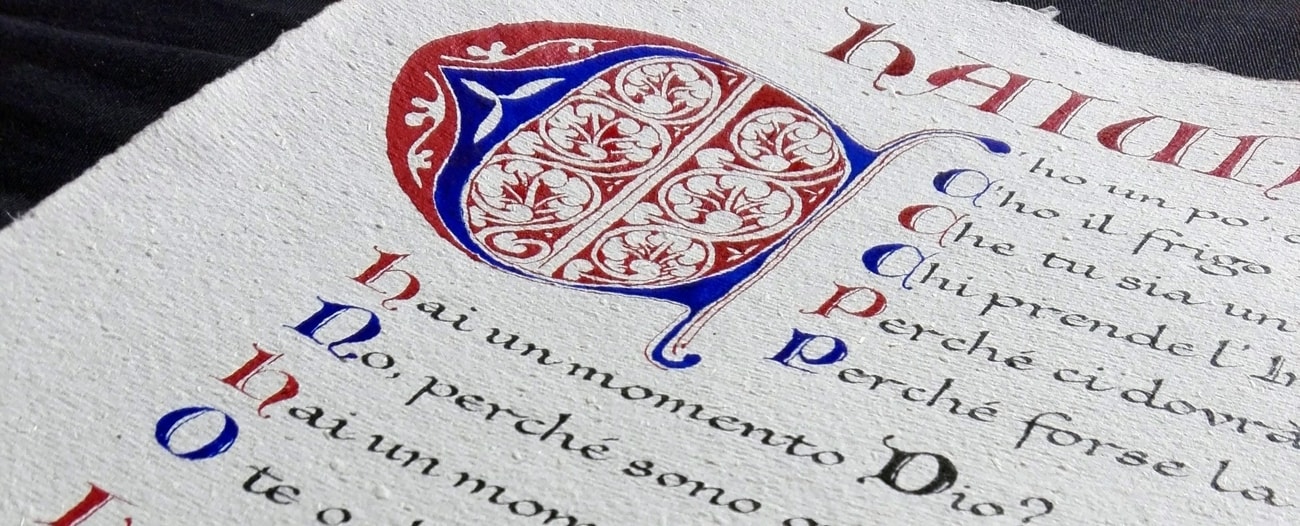 hAI UN
C'ho un po'
C'ho il frigo
Che tu sia un
Chi prende l' In
Perché ci dovrà
Perché forse la
hai un momento Dio?
No, perché sono
hai un mom
O te o